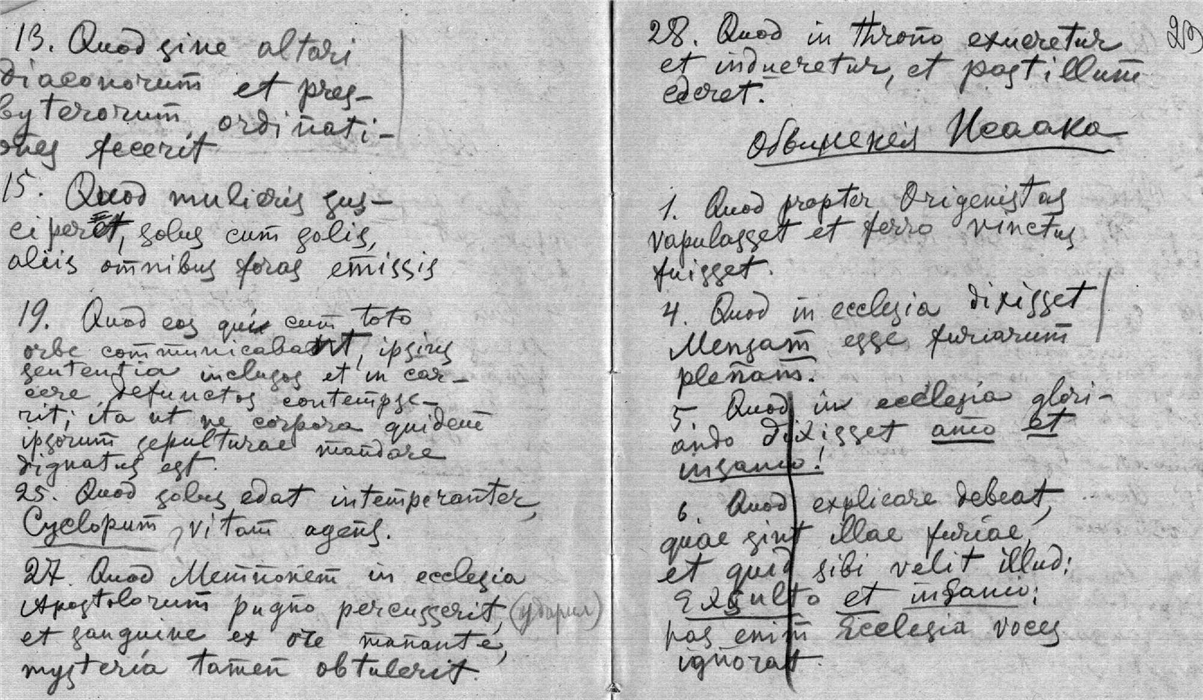 13. Quod sine altari
diaconorum et pres-
byterorum ordinati-
ones fecerit
15. Quod mulieris sus-
ciperet, solus cum solis,
aliis omnibus foras emissis
19. Quod eos qui cum toto
orbe communicabant, ipsius
sententia inclusos et in car-
cere defunctos contempse-
rit; ita ut ne corpora quidem
ipsorum sepulturae mandare
dignatus est.
25. Quod solus edat intemperanter,
Cyclopum vitam agens.
27. Quod Memnonem in ecclesia
Apostolorum pugno percusserit, (ударил)
et sanguine ex ore manante,
mysteria tamen obtulerit.
28. Quod in throno exueretur
et indueretur, et postillum
ederet.
обвинения Исаака
1. Quod propter Origenistas
vapulasset et ferro vinctus
fuisset.
4. Quod in ecclesia dixisset
Mensam esse furiarum
plenam.
5. Quod in ecclesia glori-
ando dixisset amo et
insanio!
6. Quod explicare debeat,
quae sint illae furiae,
et quid sibi velit illud:
Exsulto et insanio:
has enim Ecclesia voces
ignorat.